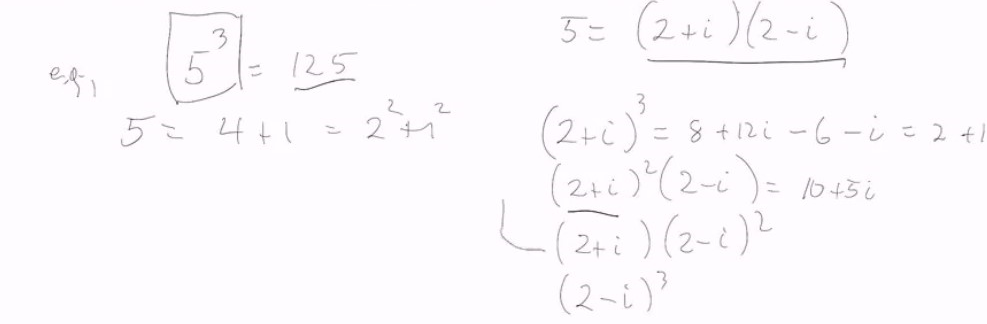 e.g., 5³ = 125
5 = 4 + 1 = 2² + 1²
5 = (2+i)(2-i)
(2+i)³ = 8 + 12i - 6 - i = 2 + 1
(2+i)²(2-i) = 10+5i
(2+i)(2-i)²
(2-i)³